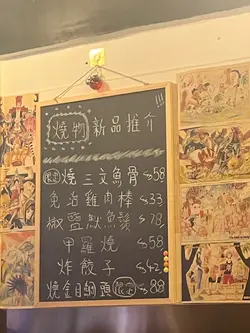 燒物 新品推介
限定 燒三文魚骨 $58
免治雞肉棒 $33
椒鹽魷魚鬚 $78
甲羅燒 $58
炸餃子 $42
燒金目鯛頭 限定 $88